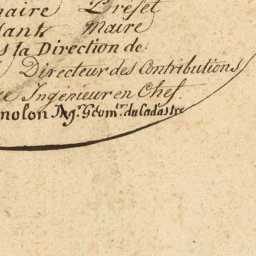 naire Préfet
Maire
s la Direction de
Directeur des Contributions
Ingénieur en Chef.
nolon Ing.r Géom.tr du Cadastre